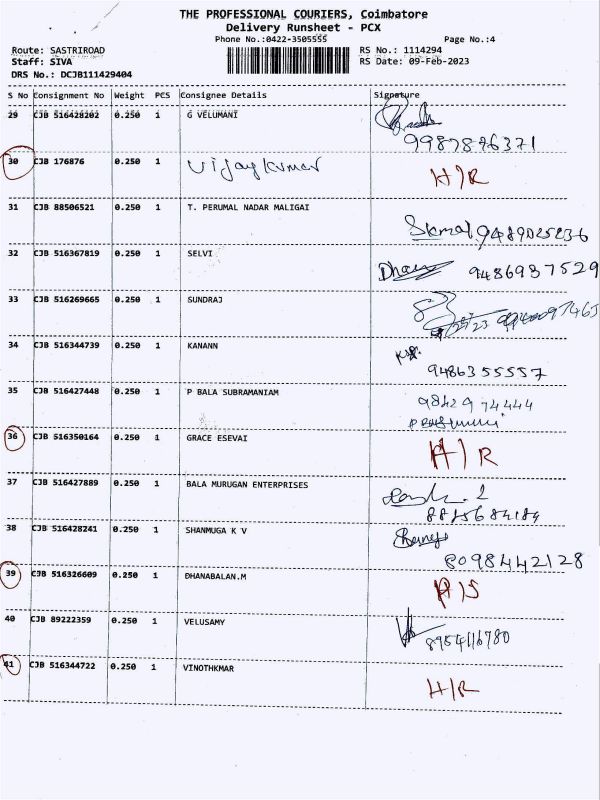 THE PROFESSIONAL COURIERS, Coimbatore
Delivery Runsheet - PCX
Phone No.:0422-3505555 Page No.:4
Route: SASTRIROAD RS No.: 1114294
Staff: SIVA RS Date: 09-Feb-2023
DRS No.: DCJB111429404
S No Consignment No Weight PCS Consignee Details Signature
29 CJB 516428202 0.250 1 G VELUMANI
9987876371
30 CJB 176876 0.250 1 Vijay Kumar H/R
31 CJB 88506521 0.250 1 T. PERUMAL NADAR MALIGAI
9489025236
32 CJB 516367819 0.250 1 SELVI
9486937529
33 CJB 516269665 0.250 1 SUNDRAJ
34 CJB 516344739 0.250 1 KANANN
9486355557
35 CJB 516427448 0.250 1 P BALA SUBRAMANIAM
9842974444
36 CJB 516350164 0.250 1 GRACE ESEVAI H/R
37 CJB 516427889 0.250 1 BALA MURUGAN ENTERPRISES
38 CJB 516428241 0.250 1 SHANMUGA K V
8098442128
39 CJB 516326609 0.250 1 DHANABALAN.M H/S
40 CJB 89222359 0.250 1 VELUSAMY
8954116780
41 CJB 516344722 0.250 1 VINOTHKMAR H/R